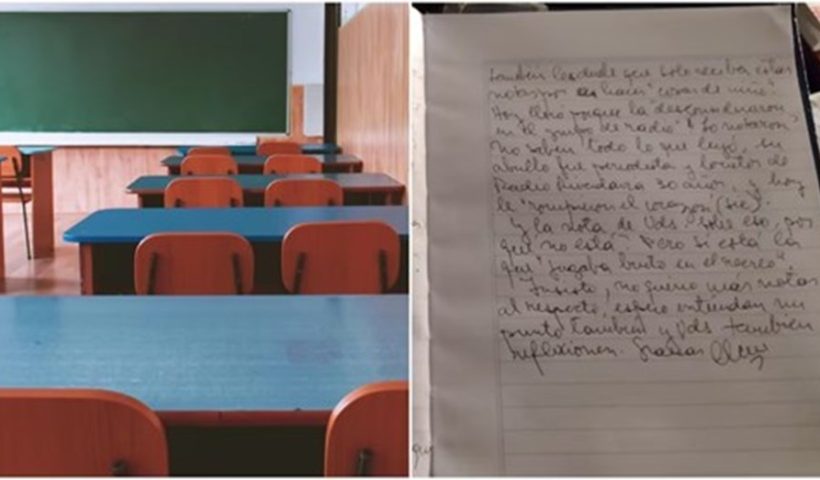 también les duele que solo reciba estas
notas por hacer "cosas de niñe".
Hoy lloró porque la desconsideraron,
en "el grupo de radio" lo notaron
No saben todo lo que leyó, su
abuelo fue periodista y locutor de
Radio Rivadavia 30 años, y hoy
le "rompieron el corazón (sic)".
Y la nota de Uds "sobre eso, por
qué no está". Pero si está la
que "jugaba bruto en el recreo".
Insisto, no quiero más notas
al respecto, espero entiendan mi
punto también y Uds también
reflexionen. Gracias